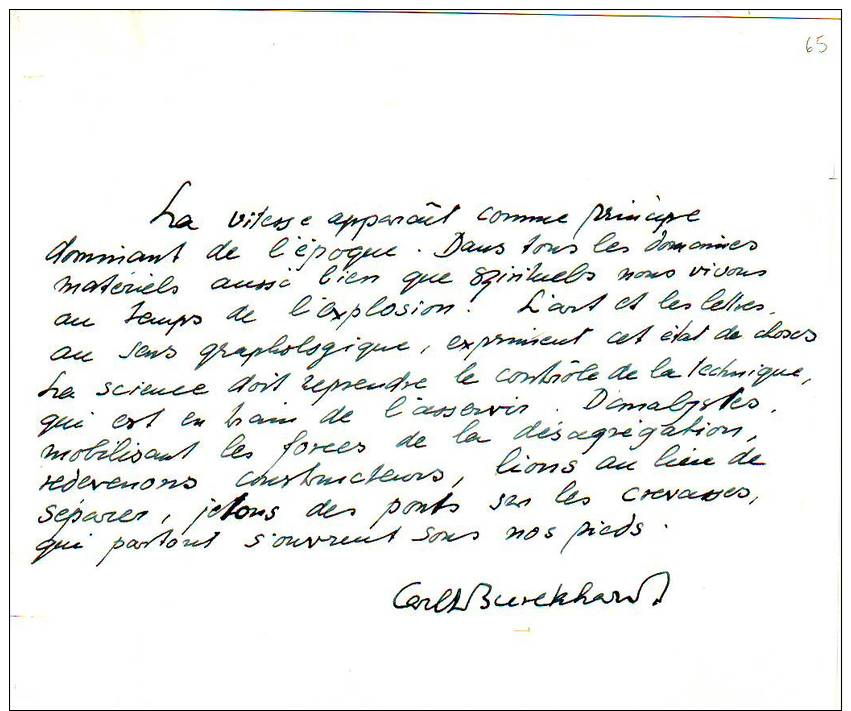 65
La vitesse apparaît comme principe
dominant de l'époque. Dans tous les domaines
matériels aussi bien que spirituels nous vivons
au temps de l'explosion. L'art et les lettres,
au sens graphologique, expriment cet état de choses
La science doit reprendre le contrôle de la technique,
qui est en train de l'asservir. D'analystes,
mobilisant les forces de la désagrégation,
redevenons constructeurs, lions au lieu de
séparer, jetons des ponts sur les crevasses,
qui partout s'ouvrent sous nos pieds.
Carl J Burckhardt